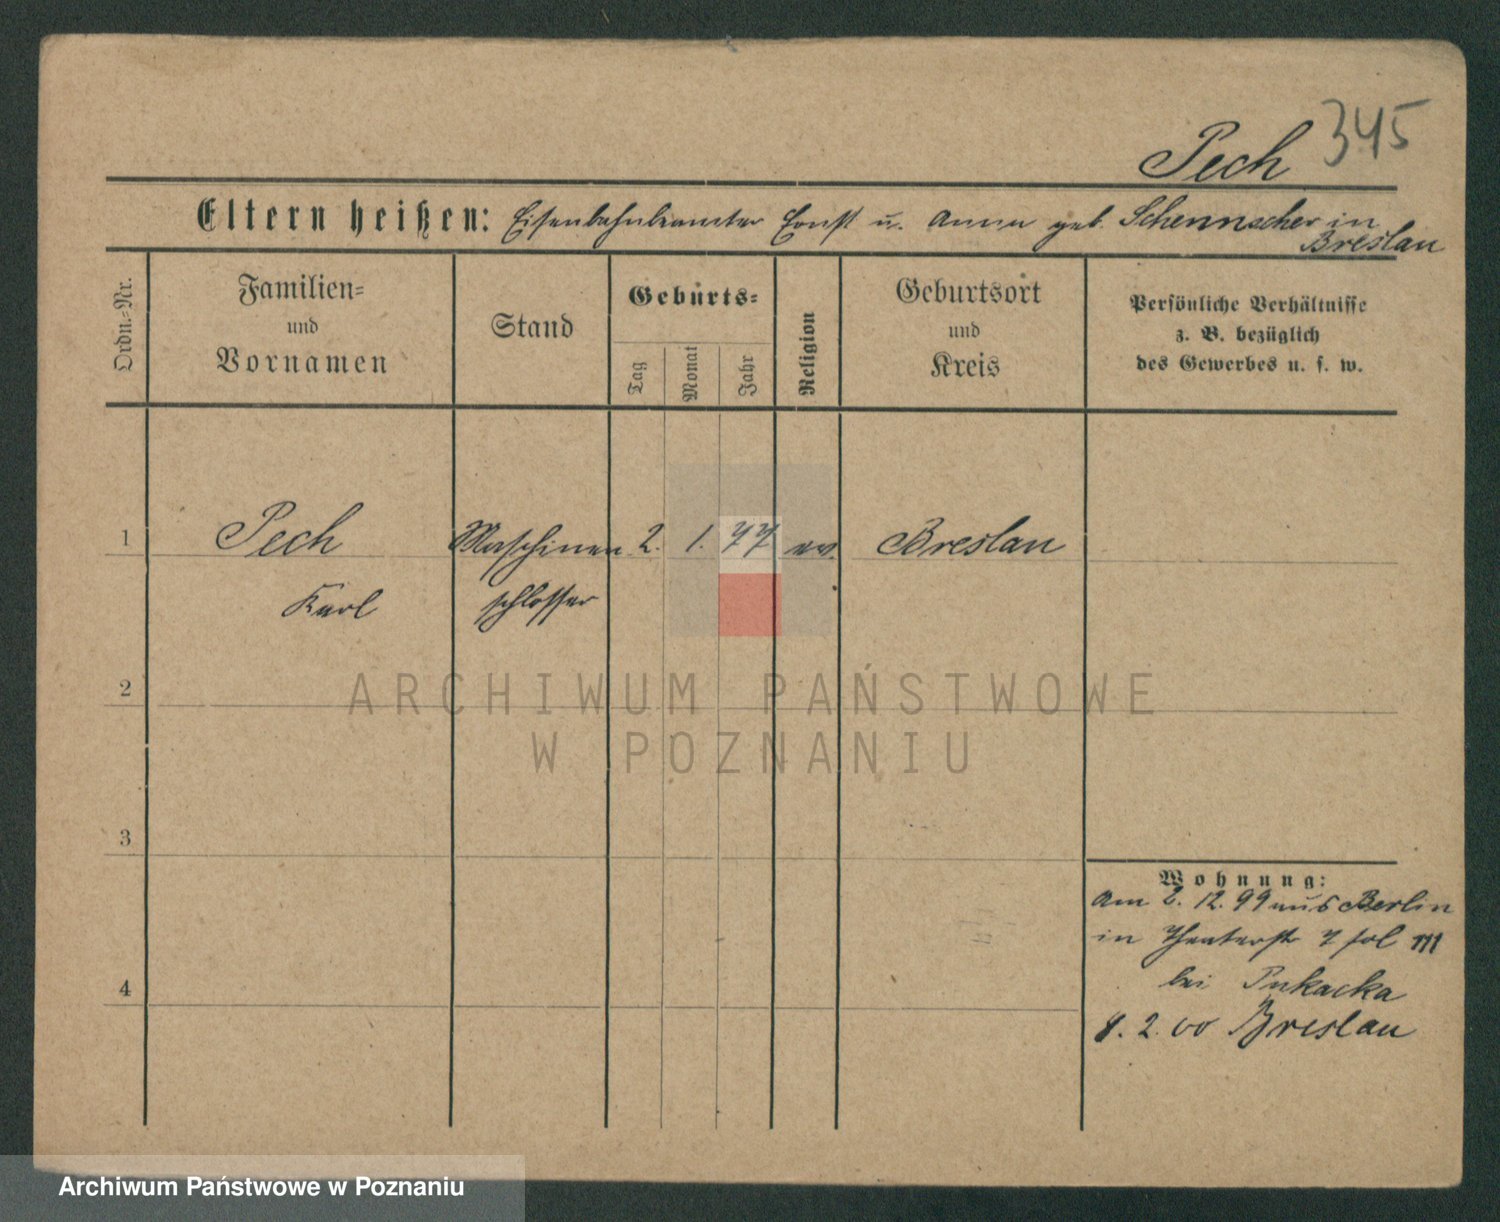 345
Pech
Eltern heißen: Eisenbahnbeamter Ernst u. Anna geb. Schennscher in
Breslau
Ordn.-Nr.
Familien-
und
Vornamen
Stand
Geburts-
Tag
Monat
Jahr
Religion
Geburtsort
und
Kreis
Persönliche Verhältnisse
z. B. bezüglich
des Gewerbes u. s. w.
1 Pech Maschinen 2. 1. 77 ev. Breslau
Karl schlosser
2
ARCHIWUM PAŃSTWOWE
W POZNANIU
3
Wohnung:
Am 2. 12. 99 aus Berlin
in Theaterstr 7 III
bei Pukacka
4
2. 00 Breslau
Archiwum Państwowe w Poznaniu